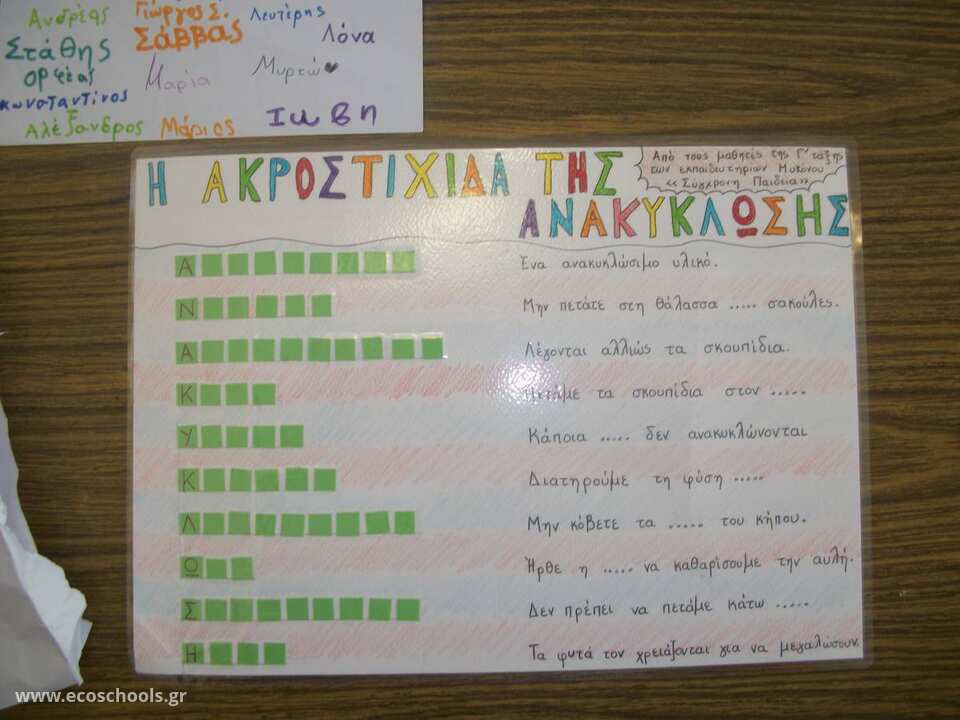 Ανδρέας Γιώργος Σ. Λευτέρης
Στάθης Σάββας Λόνα
ορφέας Μαρία Μυρτώ
κωνσταντίνος
Αλέξανδρος Μάριος Ιωβη
Η ΑΚΡΟΣΤΙΧΙΔΑ ΤΗΣ
ΑΝΑΚΥΚΛΩΣΗΣ
Από τους μαθητές της Γ' τάξης
των εκπαιδευτηρίων Μυκόνου
<< Σύγχρονη Παιδεία>>
Α Ένα ανακυκλώσιμο υλικό.
Ν Μην πετάτε στη θάλασσα ..... σακούλες.
Α Λέγονται αλλιώς τα σκουπίδια.
Κ Πετάμε τα σκουπίδια στον .....
Υ Κάποια ..... δεν ανακυκλώνονται
Κ Διατηρούμε τη φύση .....
Λ Μην κόβετε τα ..... του κήπου.
Ω Ήρθε η ..... να καθαρίσουμε την αυλή.
Σ Δεν πρέπει να πετάμε κάτω .....
Η Τα φυτά τον χρειάζονται για να μεγαλώσουν.
www.ecoschools.gr